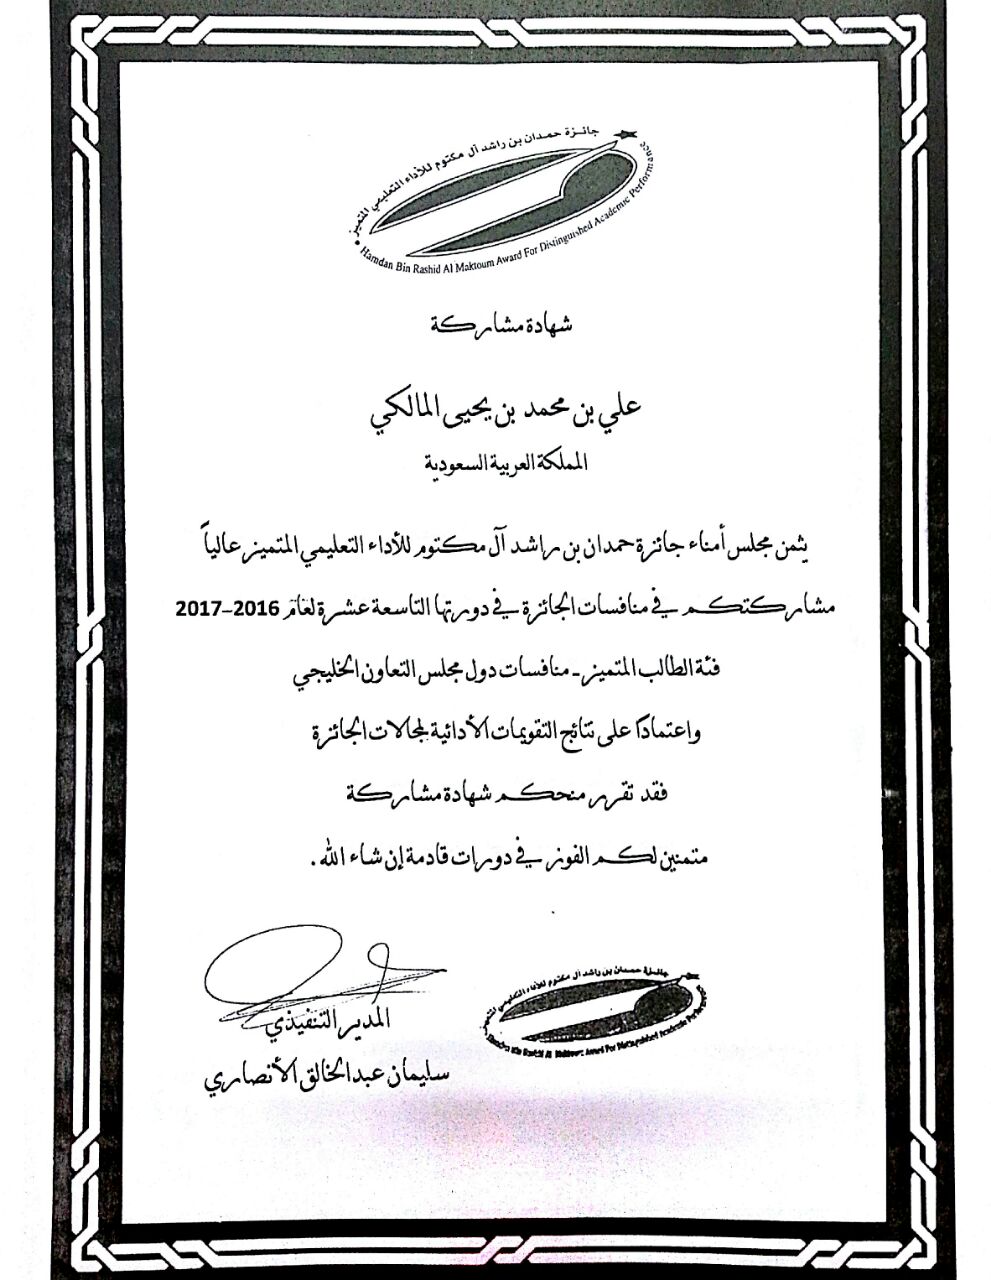 جائزة حمدان بن راشد آل مكتوم للأداء التعليمي المتميز
Hamdan Bin Rashid Al Maktoum Award For Distinguished Academic Performance
شهادة مشاركة
علي بن محمد بن يحيى المالكي
المملكة العربية السعودية
يثمن مجلس أمناء جائزة حمدان بن راشد آل مكتوم للأداء التعليمي المتميز عالياً
مشاركتكم في منافسات الجائزة في دورتها التاسعة عشرة لعام 2016-2017
فئة الطالب المتميز - منافسات دول مجلس التعاون الخليجي
واعتماداً على نتائج التقويمات الأدائية لمجالات الجائزة
فقد تقرر منحكم شهادة مشاركة
متمنين لكم الفوز في دورات قادمة إن شاء الله .
جائزة حمدان بن راشد آل مكتوم للأداء التعليمي المتميز
Hamdan Bin Rashid Al Maktoum Award For Distinguished Academic Performance
المدير التنفيذي
سليمان عبدالخالق الأنصاري